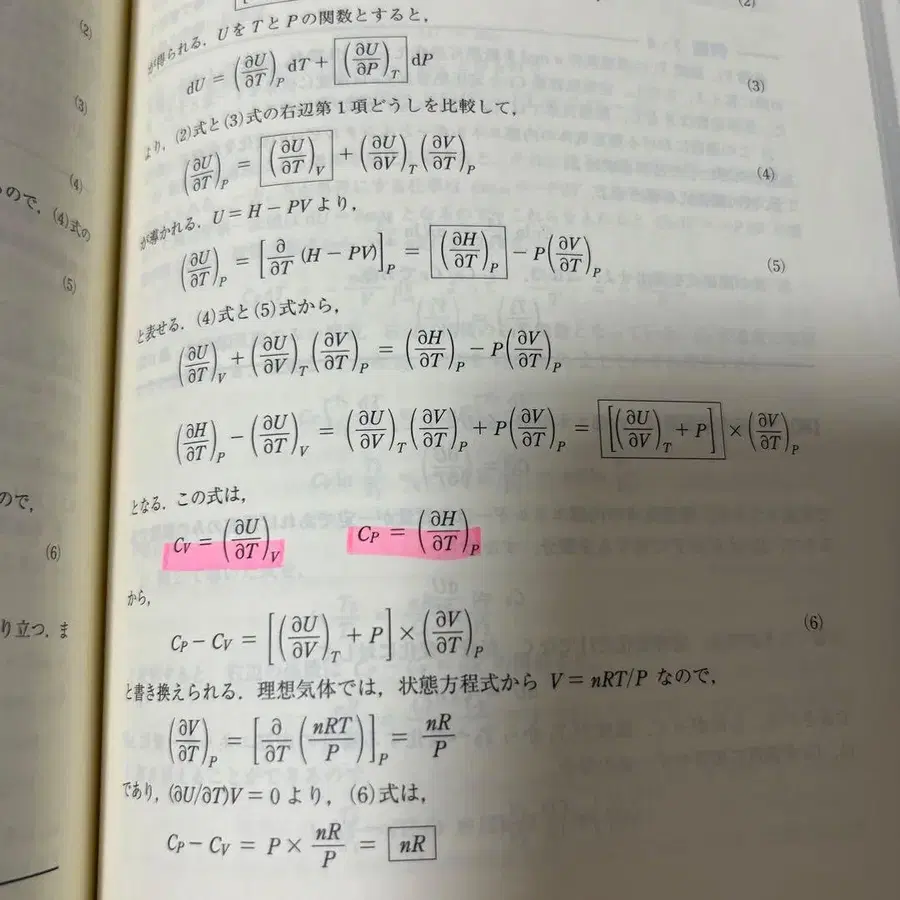 (2)
が得られる. UをTとPの関数とすると,
dU = (∂U/∂T)_P dT + (∂U/∂P)_T dP (3)
より, (2)式と(3)式の右辺第1項どうしを比較して,
(∂U/∂T)_P = (∂U/∂T)_V + (∂U/∂V)_T (∂V/∂T)_P (4)
が導かれる. U = H − PV より,
(∂U/∂T)_P = [∂/∂T (H − PV)]_P = (∂H/∂T)_P − P(∂V/∂T)_P (5)
と表せる. (4)式と(5)式から,
(∂U/∂T)_V + (∂U/∂V)_T (∂V/∂T)_P = (∂H/∂T)_P − P(∂V/∂T)_P
(∂H/∂T)_P − (∂U/∂T)_V = (∂U/∂V)_T (∂V/∂T)_P + P(∂V/∂T)_P = [(∂U/∂V)_T + P] × (∂V/∂T)_P
となる. この式は,
C_V = (∂U/∂T)_V C_P = (∂H/∂T)_P
から,
C_P − C_V = [(∂U/∂V)_T + P] × (∂V/∂T)_P (6)
と書き換えられる. 理想気体では, 状態方程式から V = nRT/P なので,
(∂V/∂T)_P = [∂/∂T (nRT/P)]_P = nR/P
であり, (∂U/∂T)V = 0 より, (6)式は,
C_P − C_V = P × nR/P = nR
(2)
(3)
(4)
ので, (4)式の
(5)
ので,
(6)
り立つ. ま